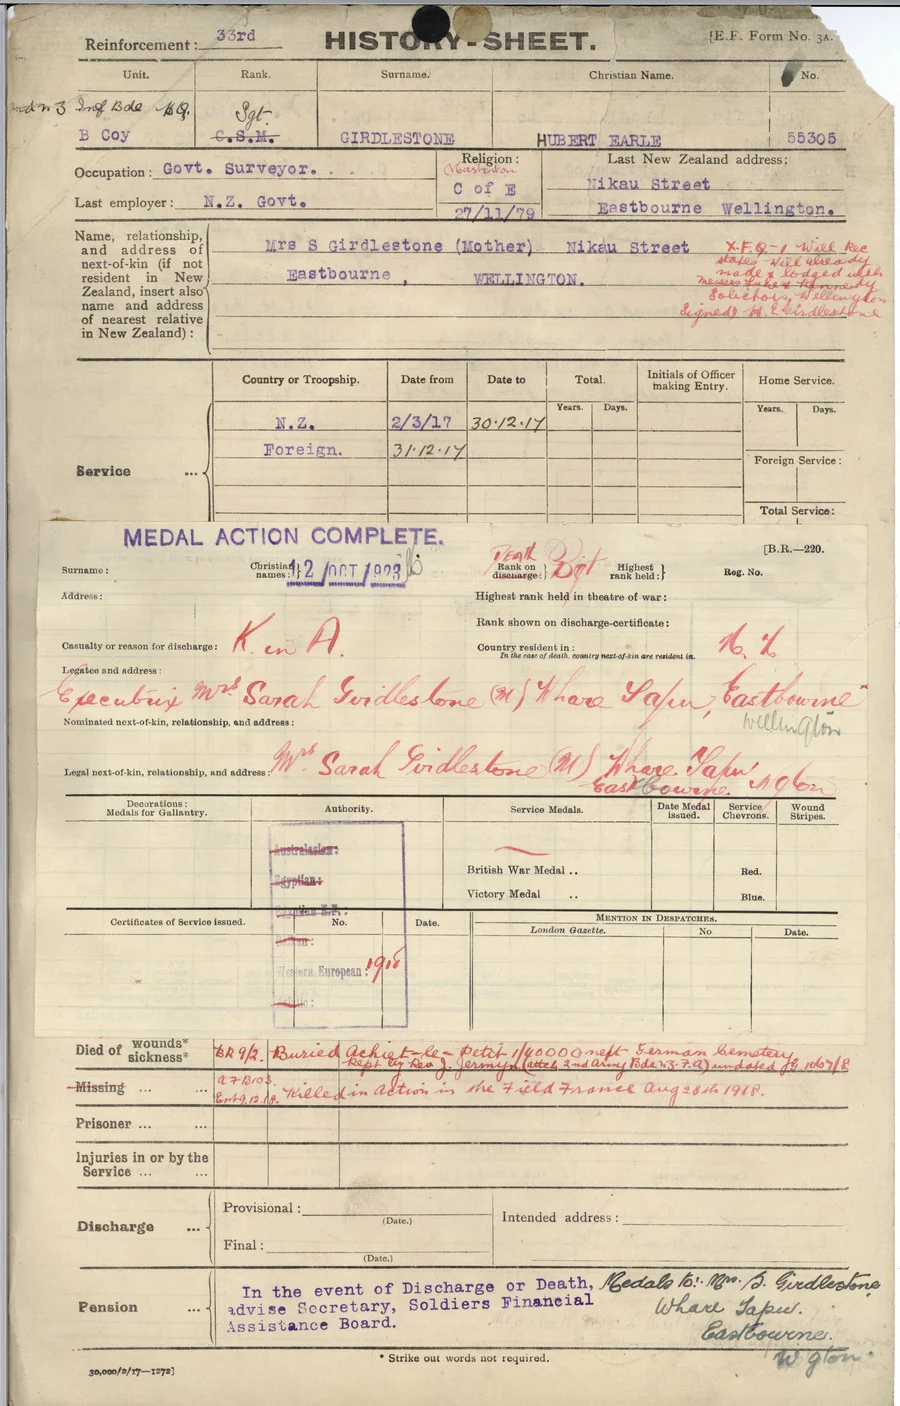 Reinforcement: 33rd HISTORY-SHEET. [E.F. Form No. 3A.
Unit. Rank. Surname. Christian Name. No.
3 Inf Bde H.Q. Sgt.
B Coy C.S.M. GIRDLESTONE HUBERT EARLE 55305
Occupation: Govt. Surveyor. Religion: Last New Zealand address:
C of E Nikau Street
Last employer: N.Z. Govt. 27/11/79 Eastbourne Wellington.
Name, relationship,
and address of
next-of-kin (if not
resident in New
Zealand, insert also
name and address
of nearest relative
in New Zealand):
Mrs S Girdlestone (Mother) Nikau Street
Eastbourne , WELLINGTON.
X.F.Q-1 Will Rec
states will already
made & lodged with
Messrs Luke & Kennedy
Solicitors, Wellington
Signed H. E. Girdlestone
Country or Troopship. Date from Date to Total. Initials of Officer making Entry. Home Service.
Years. Days. Years. Days.
N.Z. 2/3/17 30.12.17
Foreign. 31.12.17
Foreign Service:
Service ...
Total Service:
MEDAL ACTION COMPLETE. [B.R.—220.
Surname: Christian names: 12 OCT 1923 Death Rank on discharge: Sgt Highest rank held: Reg. No.
Address: Highest rank held in theatre of war:
Rank shown on discharge-certificate:
Casualty or reason for discharge: K. in A. Country resident in: N. Z.
In the case of death, country next-of-kin are resident in.
Legatee and address:
Executrix Mrs Sarah Girdlestone (M) Whare Tapu, Eastbourne
Wellington
Nominated next-of-kin, relationship, and address:
Legal next-of-kin, relationship, and address: Mrs. Sarah Girdlestone (M) Whare Tapu
Eastbourne. Wgton
Decorations: Medals for Gallantry. Authority. Service Medals. Date Medal issued. Service Chevrons. Wound Stripes.
Australasian:
British War Medal .. Red.
Egyptian:
Victory Medal .. Blue.
Egyptian E.F.:
Certificates of Service issued. No. Date. MENTION IN DESPATCHES.
London Gazette. No Date.
Western European: 1918
Died of wounds* sickness* BR 9/2. Buried Achiet-le-Petit 1/40000 neft German Cemetery
Rept by Rev J. Jermyn (attch 2nd Army Bde N.Z.F.A) undated 1067/8
Missing ... ... AFB103 Ent 9.12.18. Killed in Action in the Field France Aug 28th 1918.
Prisoner ... ...
Injuries in or by the
Service ... ...
Discharge ... Provisional: (Date.) Intended address:
Final: (Date.)
Pension ... In the event of Discharge or Death,
advise Secretary, Soldiers Financial
Assistance Board.
Medals to:- Mrs. S. Girdlestone
Whare Tapu.
Eastbourne.
Wgton.
* Strike out words not required.
30,000/2/17—1272]